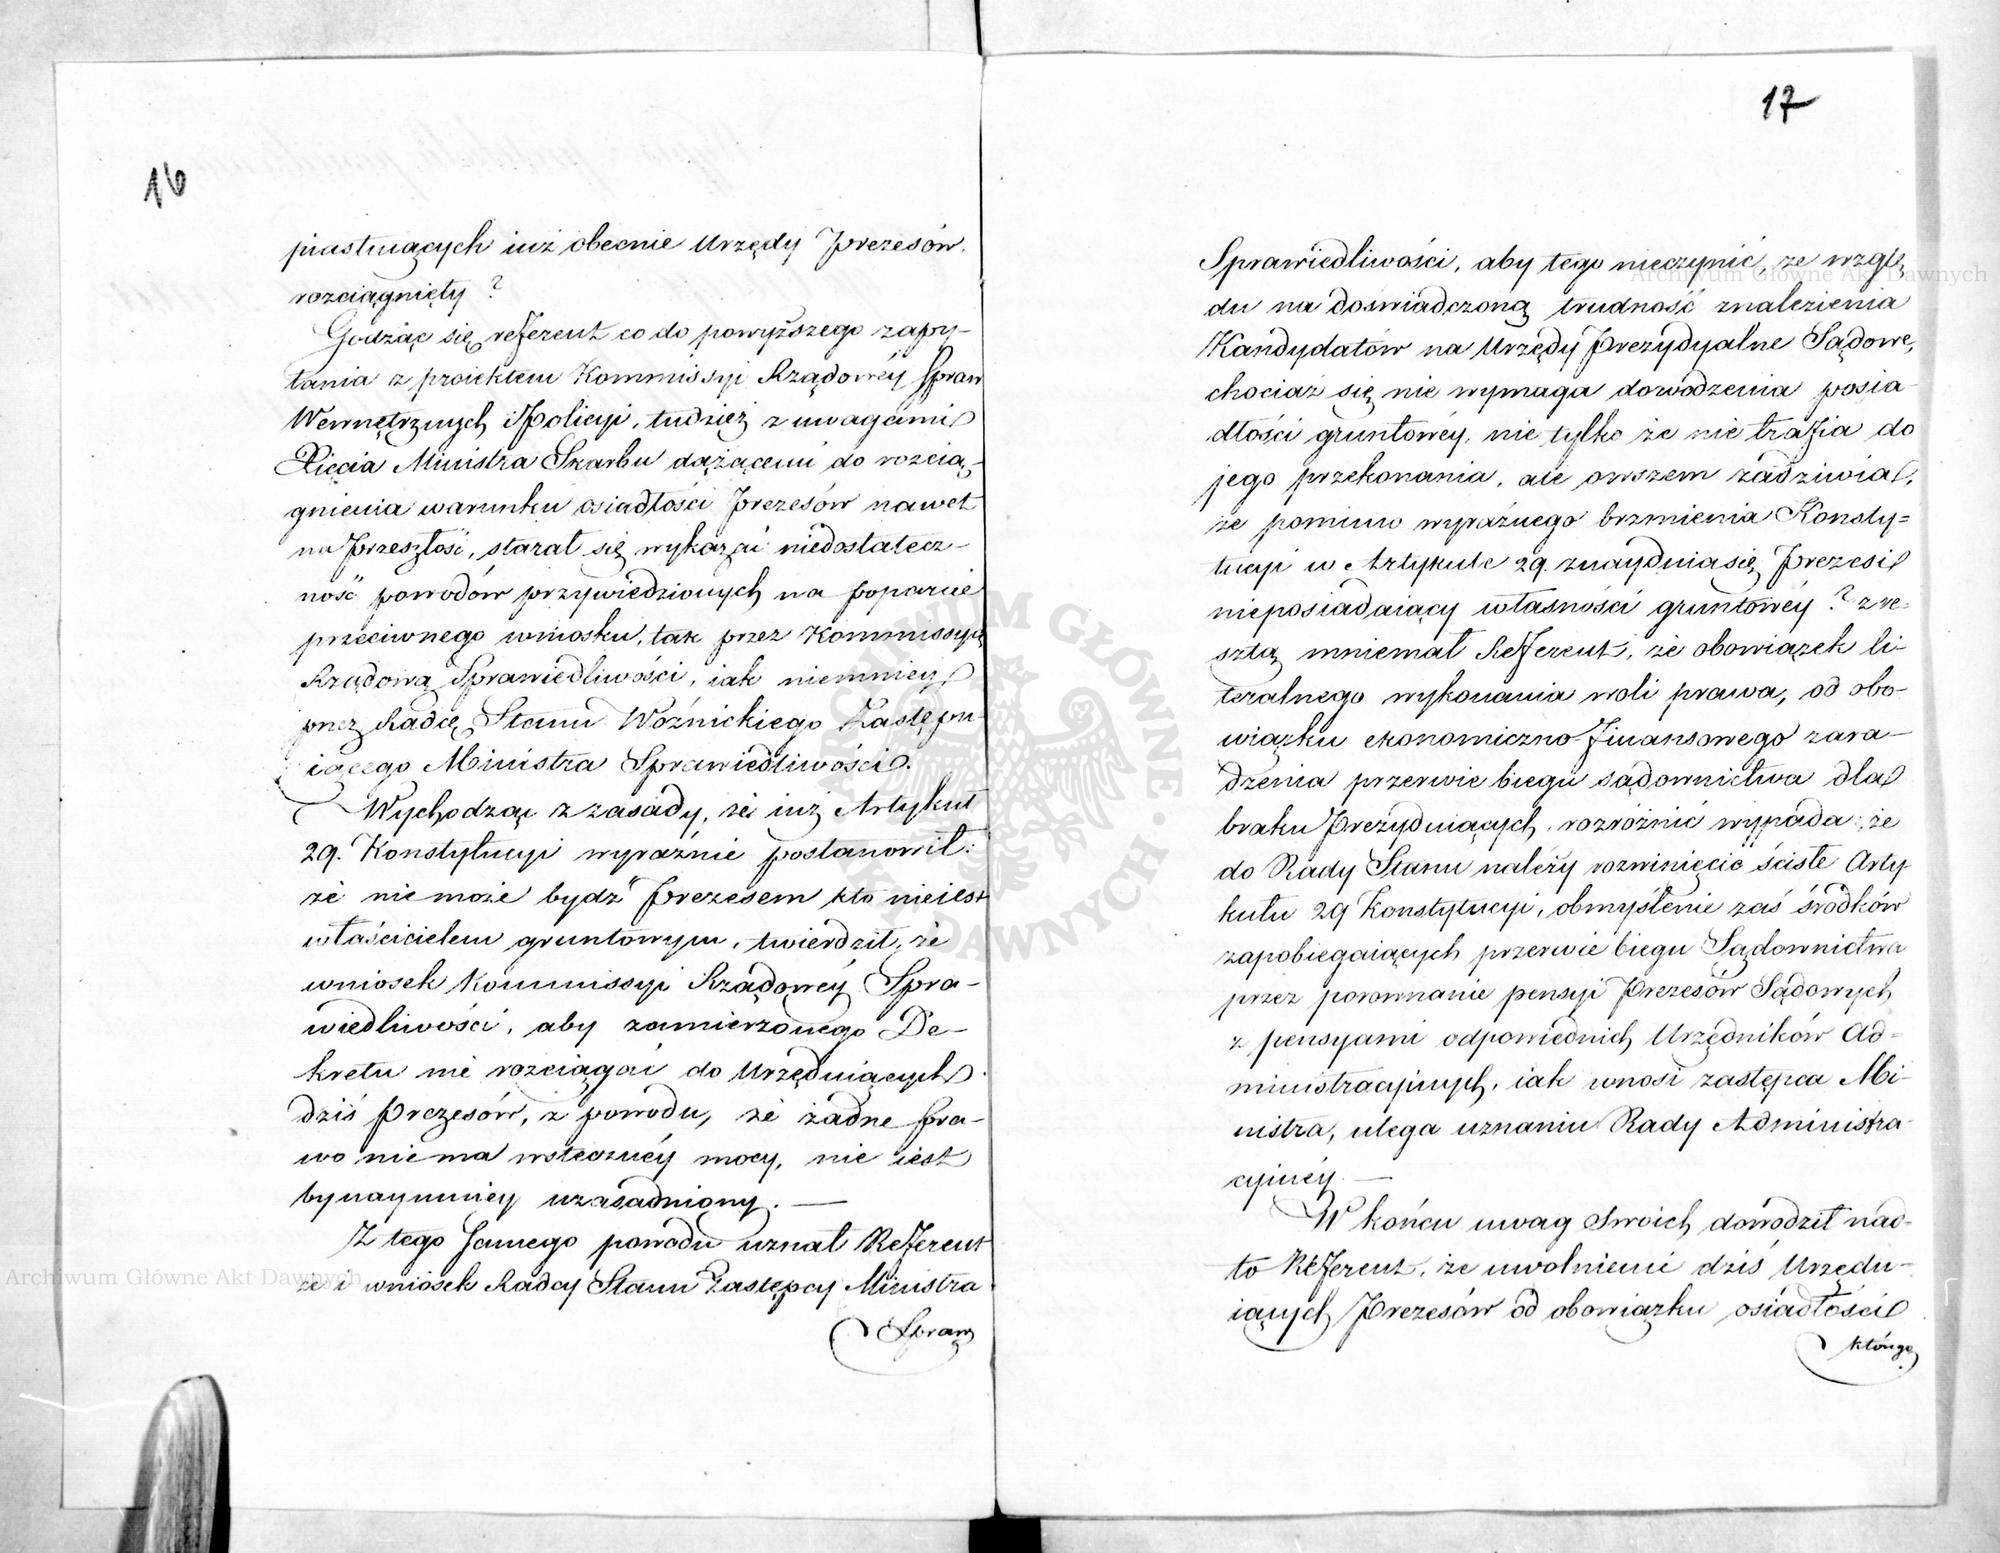 16
piastuiących iuż obecnie Urzędy Prezesów,
rozciągnięty?
Godząc się referent co do powyższego zapy-
tania z proiektem Kommissyi Rządowéy Spraw
Wewnętrznych i Policyi, tudzież z uwagami
Xięcia Ministra Skarbu dążącemi do rozcią-
gnienia warunku osiadłości Prezesów nawet
na przeszłość, starał się wykazać niedostatecz-
ność powodów przywiedzionych na poparcie
przeciwnego wniosku, tak przez Kommissyią
Rządową Sprawiedliwości, iak niemniey
przez Radcę Stanu Woźnickiego Zastępu-
iącego Ministra Sprawiedliwości.
Wychodząc z zasady, że iuż Artykuł
29. Konstytucyi wyraźnie postanowił:
że nie może bydź Prezesem kto nieiest
właścicielem gruntowym, twierdził, że
wniosek Kommissyi Rządowéy Spra-
wiedliwości, aby zamierzonego De-
kretu nie rozciągać do Urzęduiących
dziś Prezesów, z powodu, że żadne pra-
wo nie ma wstecznéy mocy, nie iest
bynaymniey uzasadniony. —
Z tego samego powodu uznał Referent
że i wniosek Radcy Stanu Zastępcy Ministra
Spraw
17
Sprawiedliwości, aby tego nieczynić, ze wzglę-
du na doświadczoną trudność znalezienia
Kandydatów na Urzędy Prezydyalne Sądowe,
chociaż się nie wymaga dowodzenia posia-
dłości gruntowéy, nie tylko że nie trafia do
jego przekonania, ale owszem zadziwia,
że pomimo wyraźnego brzmienia Konsty=
tucyi w Artykule 29. znayduia się Prezesi
nieposiadaiący własności gruntowéy? zre-
sztą mniemał Referent, że obowiązek li-
teralnego wykonania woli prawa, od obo-
wiązku ekonomiczno-finansowego zara-
dzenia przerwie biegu sądownictwa dla
braku Prezyduiących, rozróżnić wypada; że
do Rady Stanu należy rozwinięcie ściśle Arty
kułu 29 Konstytucyi, obmyślenie zaś środków
zapobiegaiących przerwie biegu Sądownictwa
przez porownanie pensyi Prezesów Sądowych
z pensyami odpowiednich Urzędników Ad=
ministracyinych, iak wnosi zastępca Mi-
nistra, ulega uznaniu Rady Administra-
cyinéy. —
W końcu uwag swoich dowodził nad-
to Referent, że uwolnienie dziś Urzędu-
iących Prezesów od obowiązku osiadłości
którego
Archiwum Główne Akt Dawnych
Archiwum Główne Akt Dawnych
ARCHIWUM GŁÓWNE AKT DAWNYCH